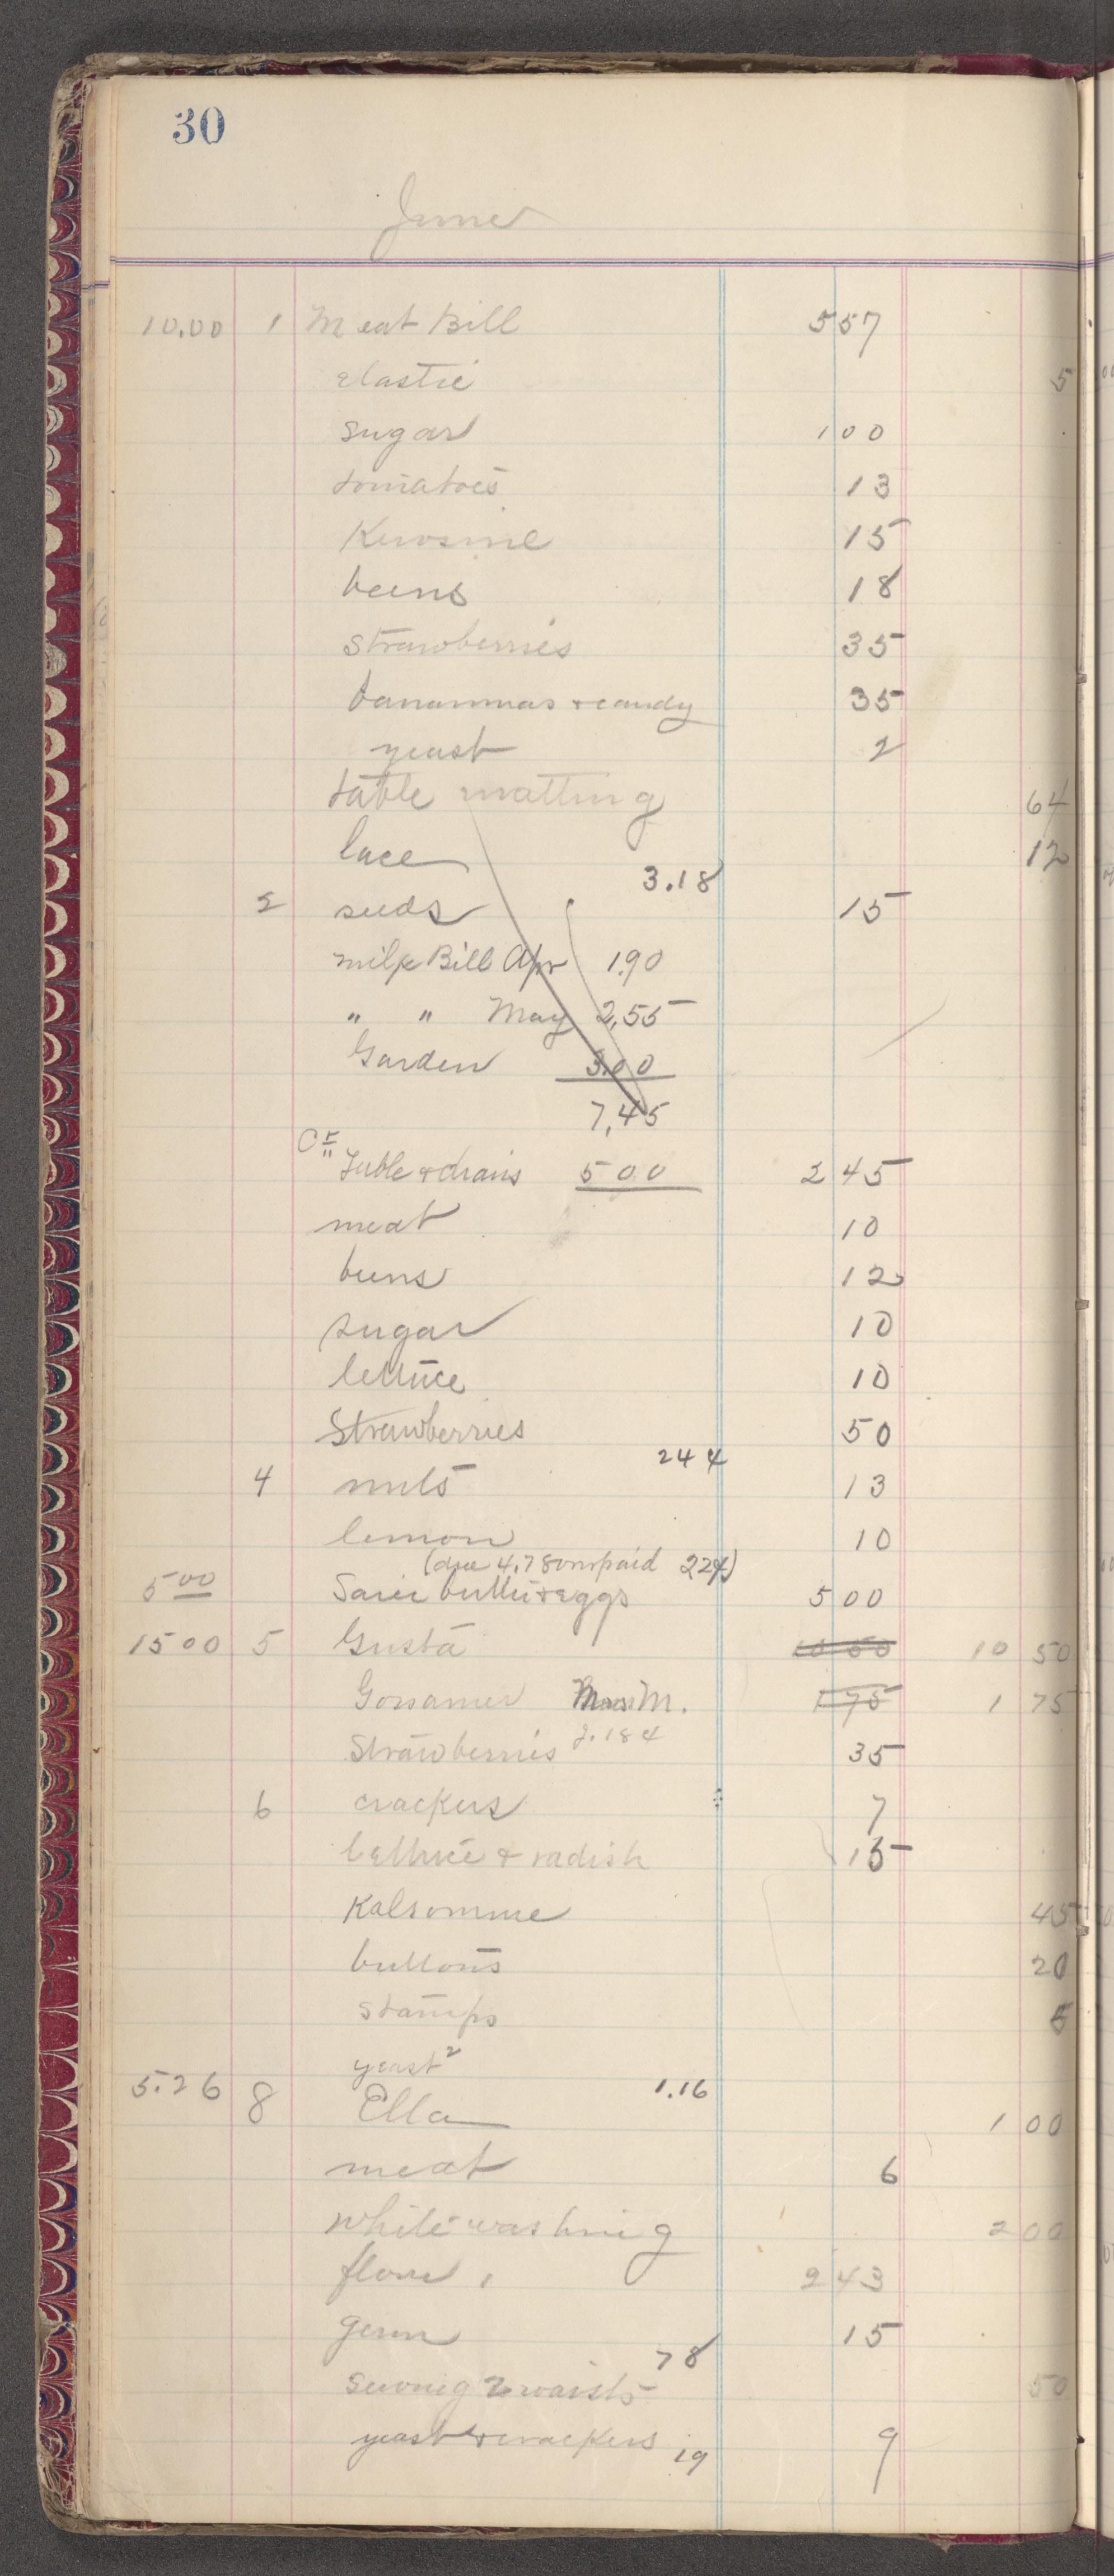 30
June
10.00 1 Meat Bill 5 57
elastic 5
sugar 1 00
tomatoes 13
Kerosine 15
beens 18
strawberries 35
bananmas + candy 35
yeast 2
table matting 64
lace 12
3.18
2 seeds 15
milk Bill Apr 1.90
" " May 2,55
Garden 3.00
7,45
Cr
Table + chairs 5 00 2 45
meat 10
buns 12
sugar 10
lettuce 10
Strawberries 50
244
4 nuts 13
lemon 10
(due 4.78 unpaid 22¢)
5 00 butter + eggs 5 00
15 00 5 Gusta 10 50 10 50
Gossamer M. 1 75 1 75
2.184
Strawberries 35
6 crackers 7
lettuce + radish 15
Kalsomine 45
buttons 20
stamps 5
yeast 2
5.26 1.16
8 Ella 1 00
meat 6
white washing 2 00
flour 2 43
germ 15
78
sewing 2 waists 50
yeast + crackers 19 9